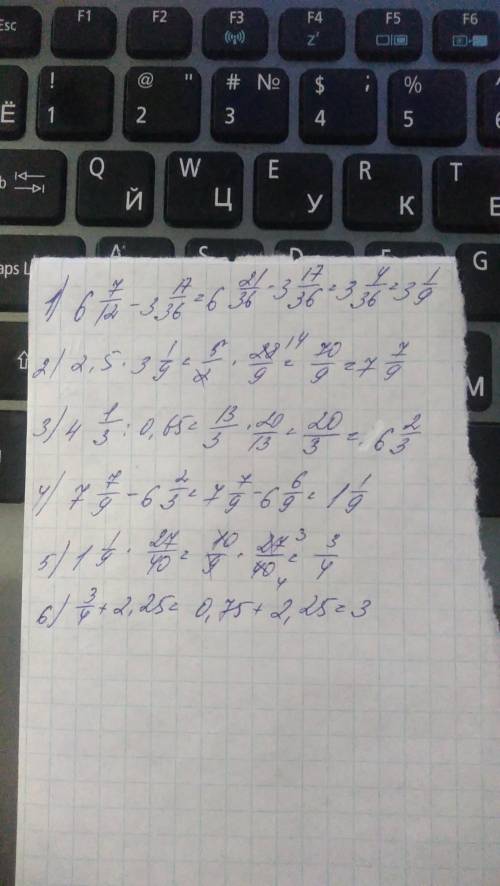 Esc F1 F2 F3 F4 F5 F6
Z
Ё ! 1 @ " 2 # № 3 $ ; 4 % 5 6
b Q Й W Ц E У R К T Е
aps L A S D F G
М
1) 6 7/12 - 3 17/36 = 6 21/36 - 3 17/36 = 3 4/36 = 3 1/9
2) 2,5 · 3 1/9 = 5/2 · 28/9 14 = 70/9 = 7 7/9
3) 4 1/3 : 0,65 = 13/3 · 20/13 = 20/3 = 6 2/3
4) 7 7/9 - 6 2/3 = 7 7/9 - 6 6/9 = 1 1/9
5) 1 1/9 · 27/40 = 10/9 · 27/40 3 4 = 3/4
6) 3/4 + 2,25 = 0,75 + 2,25 = 3